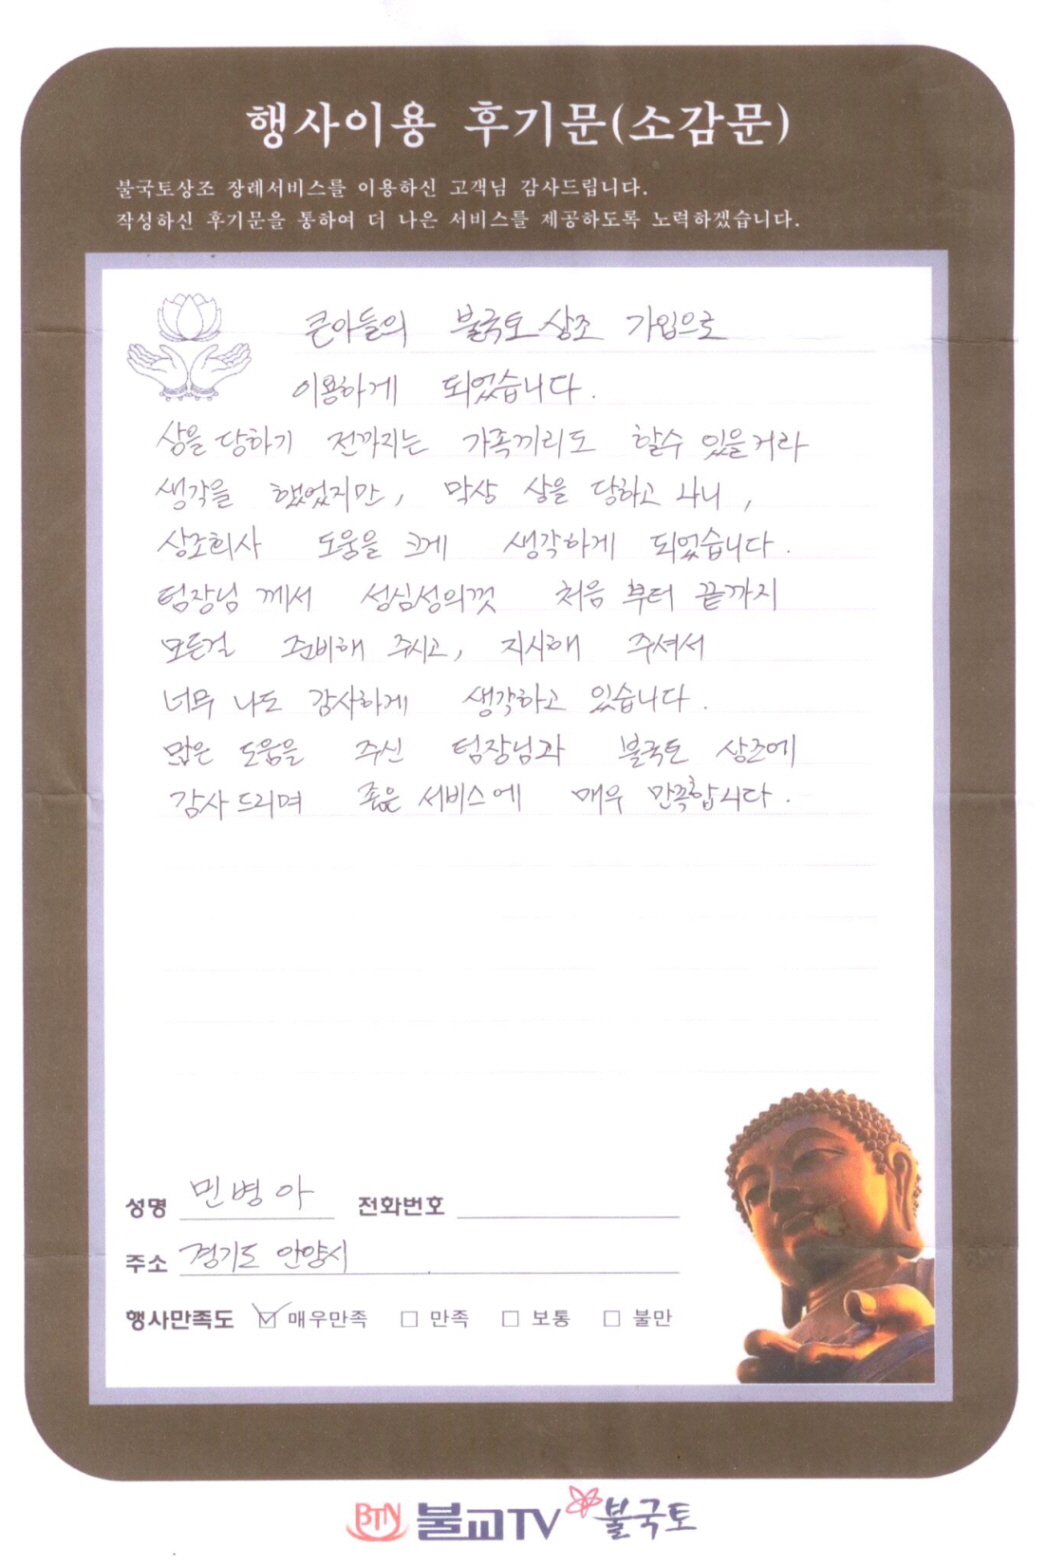 행사이용 후기문(소감문)
불국토상조 장례서비스를 이용하신 고객님 감사드립니다.
작성하신 후기문을 통하여 더 나은 서비스를 제공하도록 노력하겠습니다.
큰아들의 불국토 상조 가입으로
이용하게 되었습니다.
상을 당하기 전까지는 가족끼리도 할수 있을거라
생각을 했었지만, 막상 상을 당하고 나니,
상조회사 도움을 크게 생각하게 되었습니다.
팀장님 께서 성심성의껏 처음 부터 끝까지
모든걸 준비해 주시고, 지시해 주셔서
너무 나도 감사하게 생각하고 있습니다.
많은 도움을 주신 팀장님과 불국토 상조에
감사드리며 좋은 서비스에 매우 만족합니다.
성명 민병아 전화번호
주소 경기도 안양시
행사만족도 매우만족 만족 보통 불만
BTN 불교TV 불국토